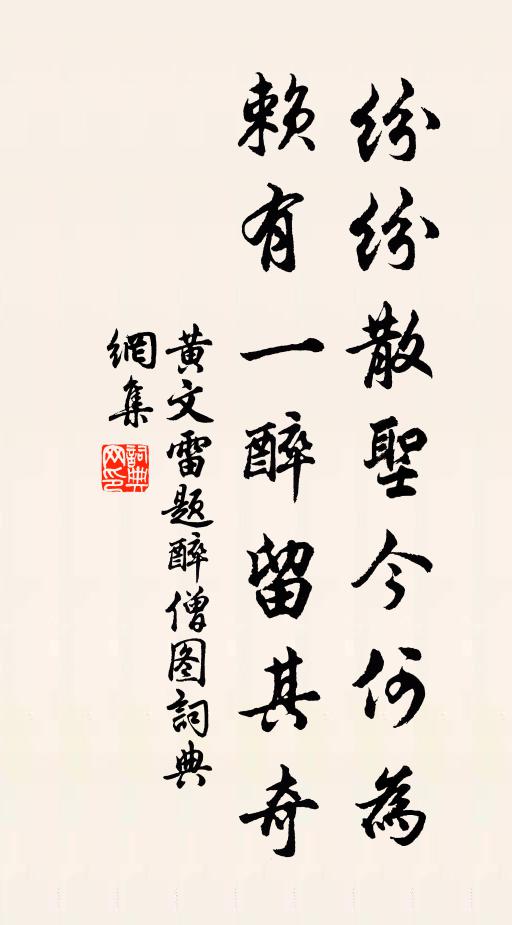 纷纷散聖今何為
赖有一醉留其奇
黄文雷题醉僧图詞典
網集
詞典网印